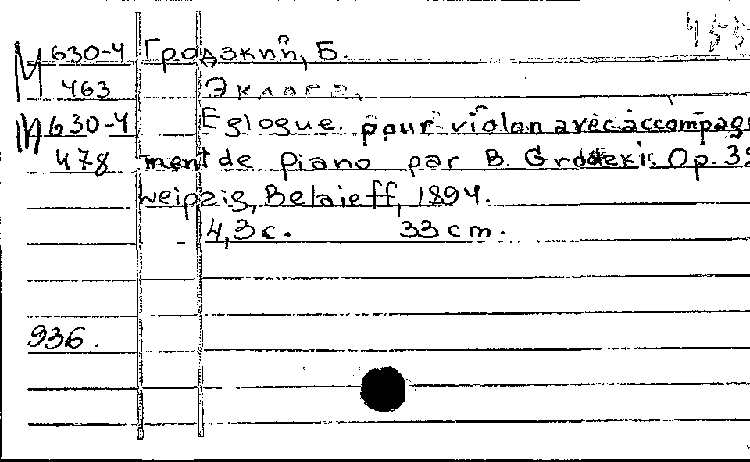 455
М 630-4 Гродзкий, Б.
463 Эклога.
М 630-4 Eglogue pour violon avec accompagne
478 ment de piano par B. Grodski. Op. 39
Leipzig, Belaieff, 1894.
4,3 с. 33 cm.
936.